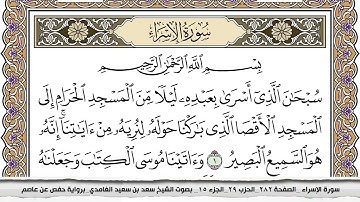 سُورَةُ الإِسۡرَاءِ
بِسۡمِ ٱللَّهِ ٱلرَّحۡمَٰنِ ٱلرَّحِيمِ
سُبۡحَٰنَ ٱلَّذِيٓ أَسۡرَىٰ بِعَبۡدِهِۦ لَيۡلٗا مِّنَ ٱلۡمَسۡجِدِ ٱلۡحَرَامِ إِلَى
ٱلۡمَسۡجِدِ ٱلۡأَقۡصَا ٱلَّذِي بَٰرَكۡنَا حَوۡلَهُۥ لِنُرِيَهُۥ مِنۡ ءَايَٰتِنَآۚ إِنَّهُۥ
هُوَ ٱلسَّمِيعُ ٱلۡبَصِيرُ ١ وَءَاتَيۡنَا مُوسَى ٱلۡكِتَٰبَ وَجَعَلۡنَٰهُ
سورة الإسراء _ الصفحة ٢٨٢ _ الحزب ٢٩ _ الجزء ١٥ _ بصوت الشيخ سعد بن سعيد الغامدي _ برواية حفص عن عاصم